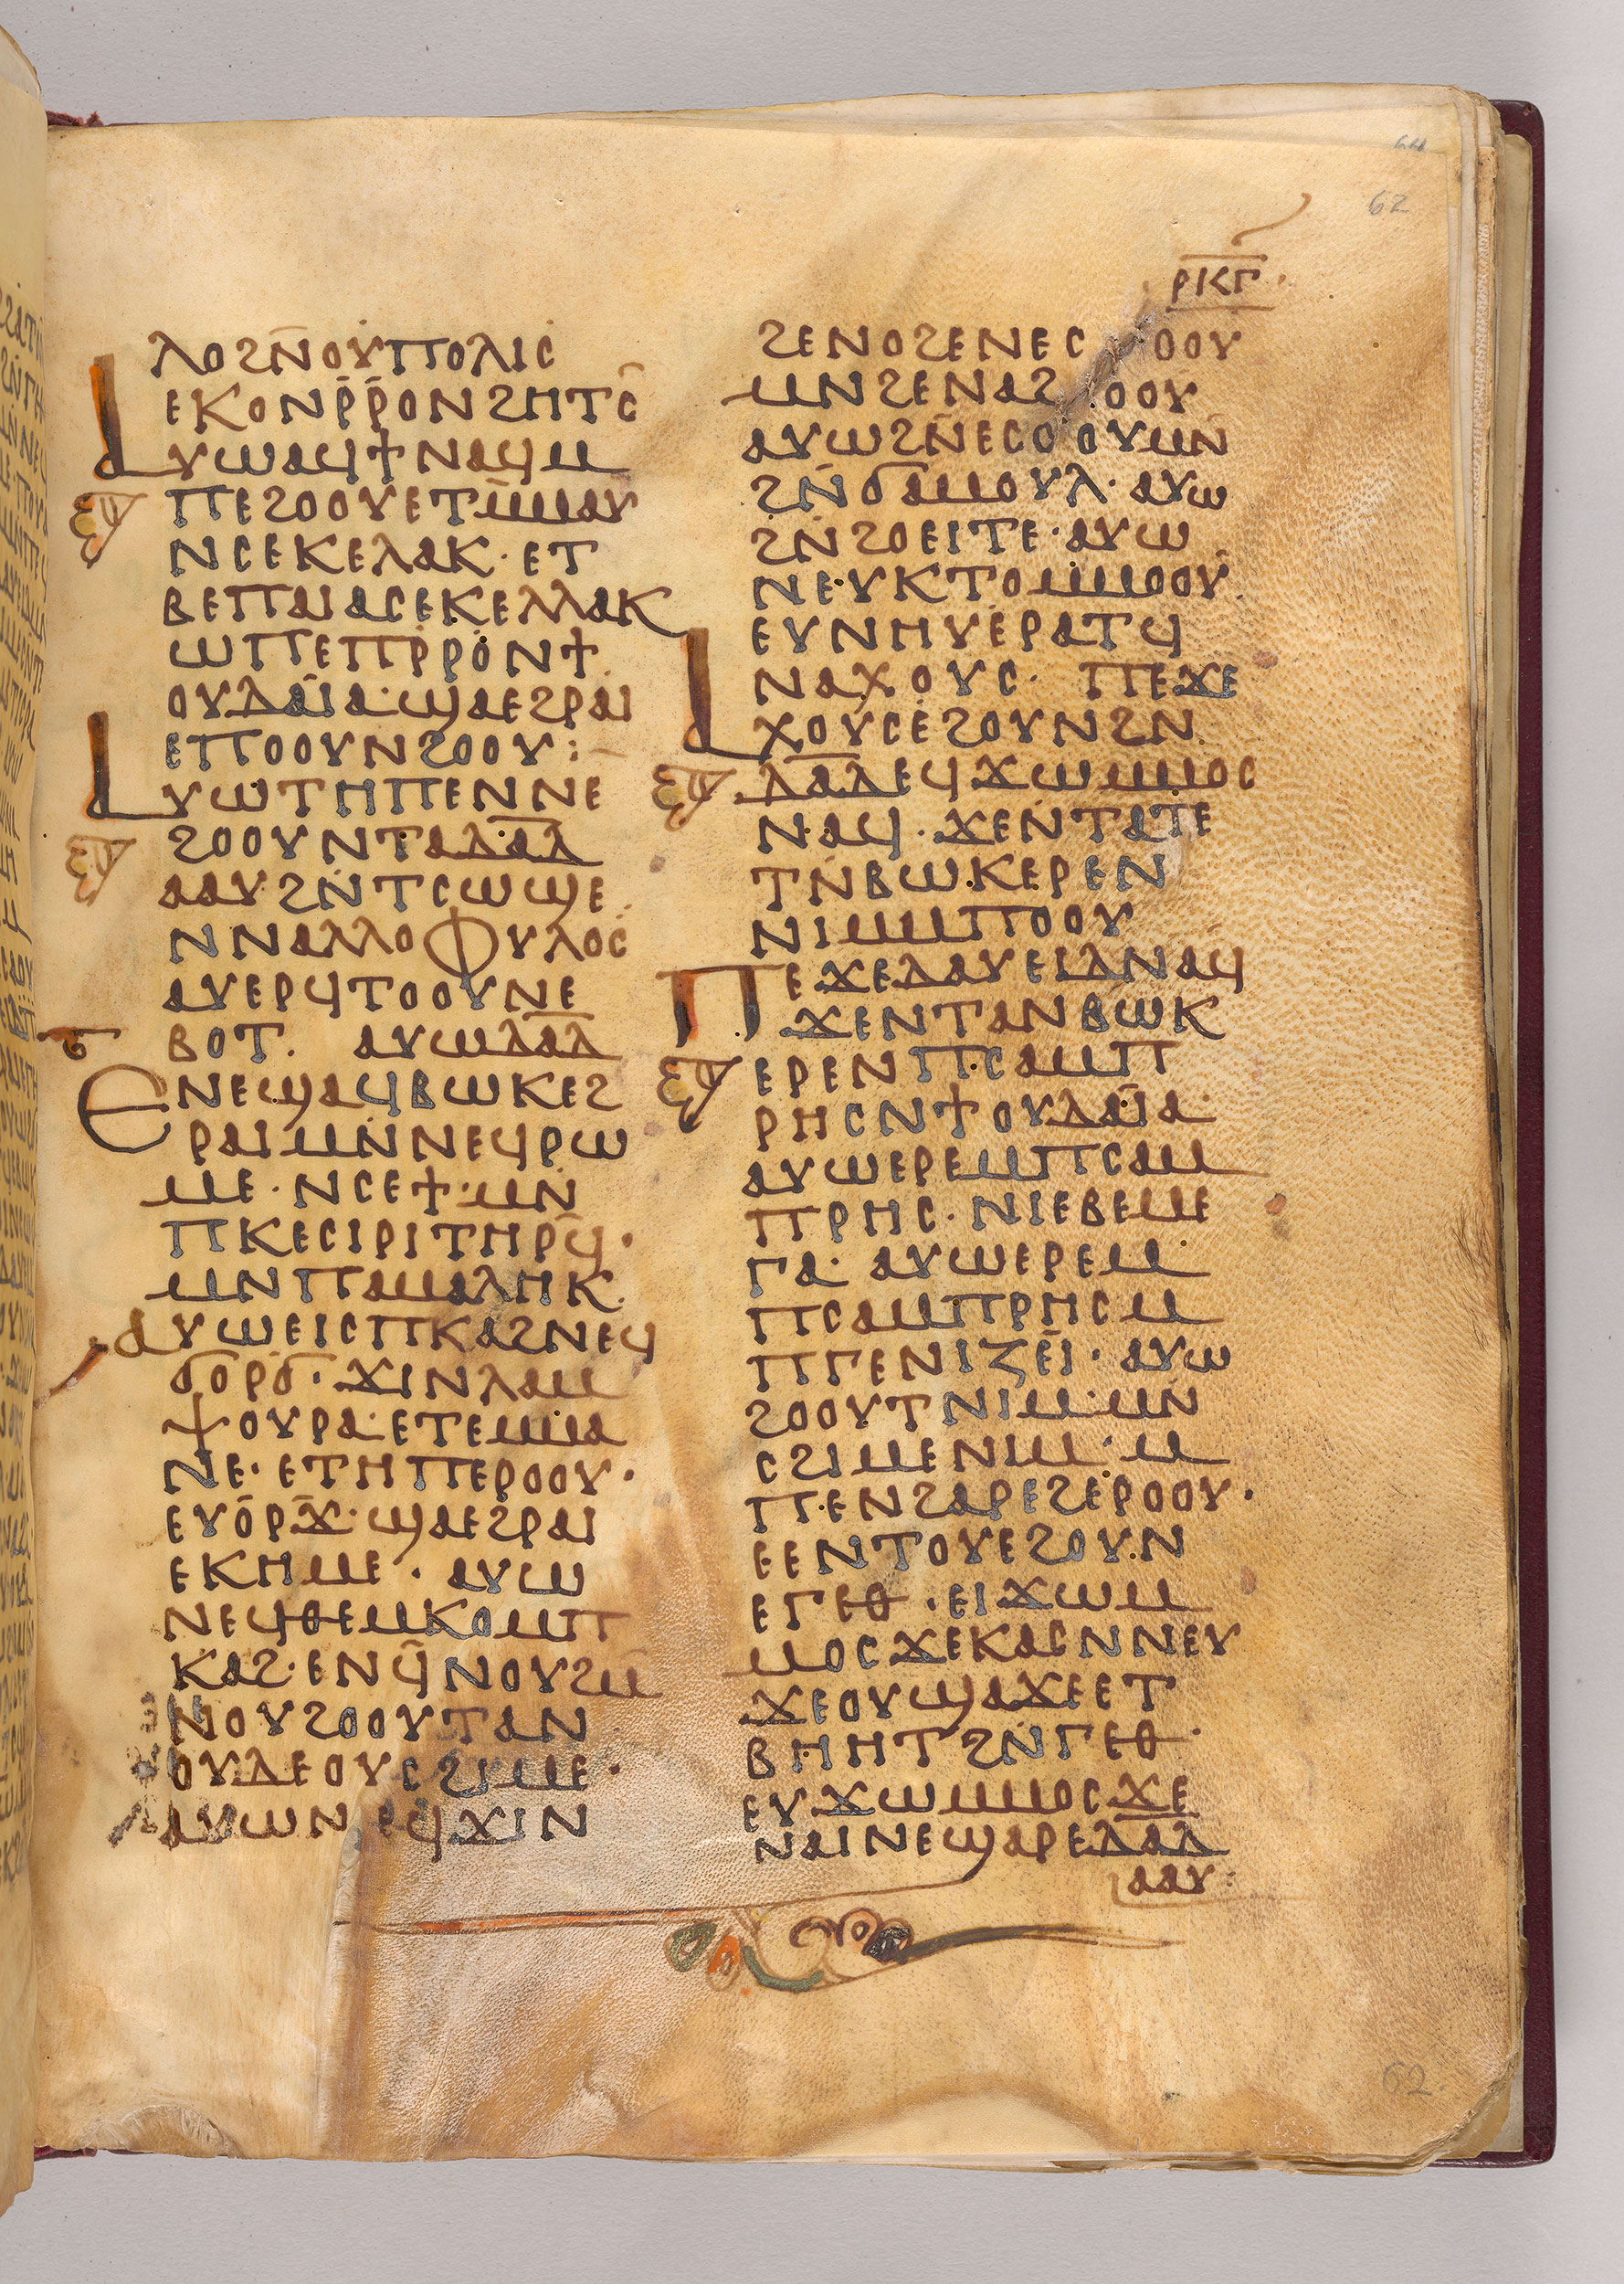 62
ⲣⲕⲅ
ⲗⲟϩⲛ̄ⲟⲩⲡⲟⲗⲓⲥ
ⲉⲕⲟⲛⲣ̄ⲣ̄ⲟⲛϩⲏⲧⲥ̄
ⲁⲩⲱⲁϥϯⲛⲁϥⲙ
ⲡⲉϩⲟⲟⲩⲉⲧⲙ̄ⲙⲁⲩ
ⲛⲥⲉⲕⲉⲗⲁⲕ· ⲉⲧ
ⲃⲉⲡⲁⲓⲁⲥⲉⲕⲉⲗⲗⲁⲕ
ⲱⲡⲉⲡⲣ̄ⲣⲟⲛϯ
ⲟⲩⲇⲁⲓⲁ· ϣⲁⲉϩⲣⲁⲓ
ⲉⲡⲟⲟⲩⲛϩⲟⲟⲩ:
ⲁⲩⲱⲧⲏⲡⲉⲛⲛⲉ
ϩⲟⲟⲩⲛⲧⲁⲇⲁ̄ⲇ
ⲁⲁⲩϩⲛ̄ⲧⲥⲱϣⲉ
ⲛⲛⲁⲗⲗⲟⲫⲩⲗⲟⲥ
ⲁⲩⲉⲣϥⲧⲟⲟⲩⲛⲉ
ⲃⲟⲧ. ⲁⲩⲱⲇⲁ̄ⲇ
ⲉⲛⲉϣⲁϥⲃⲱⲕⲉϩ
ⲣⲁⲓⲙⲛ̄ⲛⲉϥⲣⲱ
ⲙⲉ· ⲛⲥⲉϯ·ⲙⲛ̄
ⲡⲕⲉⲥⲓⲣⲓⲧⲏⲣϥ̄·
ⲙⲛⲡⲁⲙⲁⲗⲏⲕ.
ⲁⲩⲱⲉⲓⲥⲡⲕⲁϩⲛⲉϥ
ϭⲟⲣϭ· ϫⲓⲛⲗⲁⲙ
ⲯⲟⲩⲣⲁ· ⲉⲧⲉⲙⲙⲁ
ⲛⲉ· ⲉⲧⲏⲡⲉⲣⲟⲟⲩ·
ⲉⲩⲟⲣϫ̄· ϣⲁⲉϩⲣⲁⲓ
ⲉⲕⲏⲙⲉ· ⲁⲩⲱ
ⲛⲉϥⲑⲉⲙⲕⲟⲙⲡ
ⲕⲁϩ· ⲉⲛϥ̄ⲛⲟⲩϩⲙ̄
ⲛⲟⲩϩⲟⲟⲩⲧⲁⲛ
ⲟⲩⲇⲉⲟⲩⲥϩⲓⲙⲉ·
ⲁⲩⲱⲛ ⲉϥϫⲓⲛ
ϩⲉⲛⲟϩⲉⲛⲉⲥ ⲟⲟⲩ
ⲙⲛϩⲉⲛⲁϩ ⲟⲟⲩ
ⲁⲩⲱϩⲛ̄ⲉⲥⲟⲟⲩⲙⲛ̄
ϩⲛ̄ϭⲁⲙⲟⲩⲗ· ⲁⲩⲱ
ϩⲛ̄ϩⲟⲉⲓⲧⲉ· ⲁⲩⲱ
ⲛⲉⲩⲕⲧⲟⲙ̄ⲙⲟⲟⲩ.
ⲉⲩⲛⲏⲩⲉⲣⲁⲧϥ
ⲛⲁⲭⲟⲩⲥ· ⲡⲉϫⲉ
ⲁⲭⲟⲩⲥⲉϩⲟⲩⲛϩⲛ
ⲇⲁ̄ⲇⲉϥϫⲱⲙⲙⲟⲥ
ⲛⲁϥ· ϫⲉⲛⲧⲁⲧⲉ
ⲧⲛ̄ⲃⲱⲕⲉⲣⲉⲛ
ⲛⲓⲙⲙⲡⲟⲟⲩ
ⲡⲉϫⲉⲇⲁⲩⲉⲓⲇⲛⲁϥ
ϫⲉⲛⲧⲁⲛⲃⲱⲕ
ⲉⲣⲉⲛⲡⲥⲁⲙⲡ
ⲣⲏⲥⲛϯⲟⲩⲇⲁⲓⲁ·
ⲁⲩⲱⲉⲣⲉⲙⲡⲥⲁⲙ
ⲡⲣⲏⲥ· ⲛⲓⲉⲃⲉⲙⲉ
ⲅⲁ· ⲁⲩⲱⲉⲣⲉⲙ
ⲡⲥⲁⲙⲡⲣⲏⲥⲙ
ⲡⲅⲉⲛⲓⲍⲉⲓ· ⲁⲩⲱ
ϩⲟⲟⲩⲧⲛⲓⲙ·ⲙⲛ̄
ⲥϩⲓⲙⲉⲛⲓⲙ·ⲙ
ⲡⲉⲛϩⲁⲣⲉϩⲉⲣⲟⲟⲩ·
ⲉⲉⲛⲧⲟⲩⲉϩⲟⲩⲛ
ⲉⲅⲉⲑ· ⲉⲓϫⲱⲙ
ⲙⲟⲥϫⲉⲕⲁⲥⲛⲛⲉⲩ
ϫⲉⲟⲩϣⲁϫⲉⲉⲧ
ⲃⲏⲏⲧϩⲛ̄ⲅⲉⲑ·
ⲉⲩϫⲱⲙⲙⲟⲥϫⲉ
ⲛⲁⲓⲛⲉϣⲁⲣⲉⲇⲁ̄ⲇ
ⲁⲁⲩ:
62.